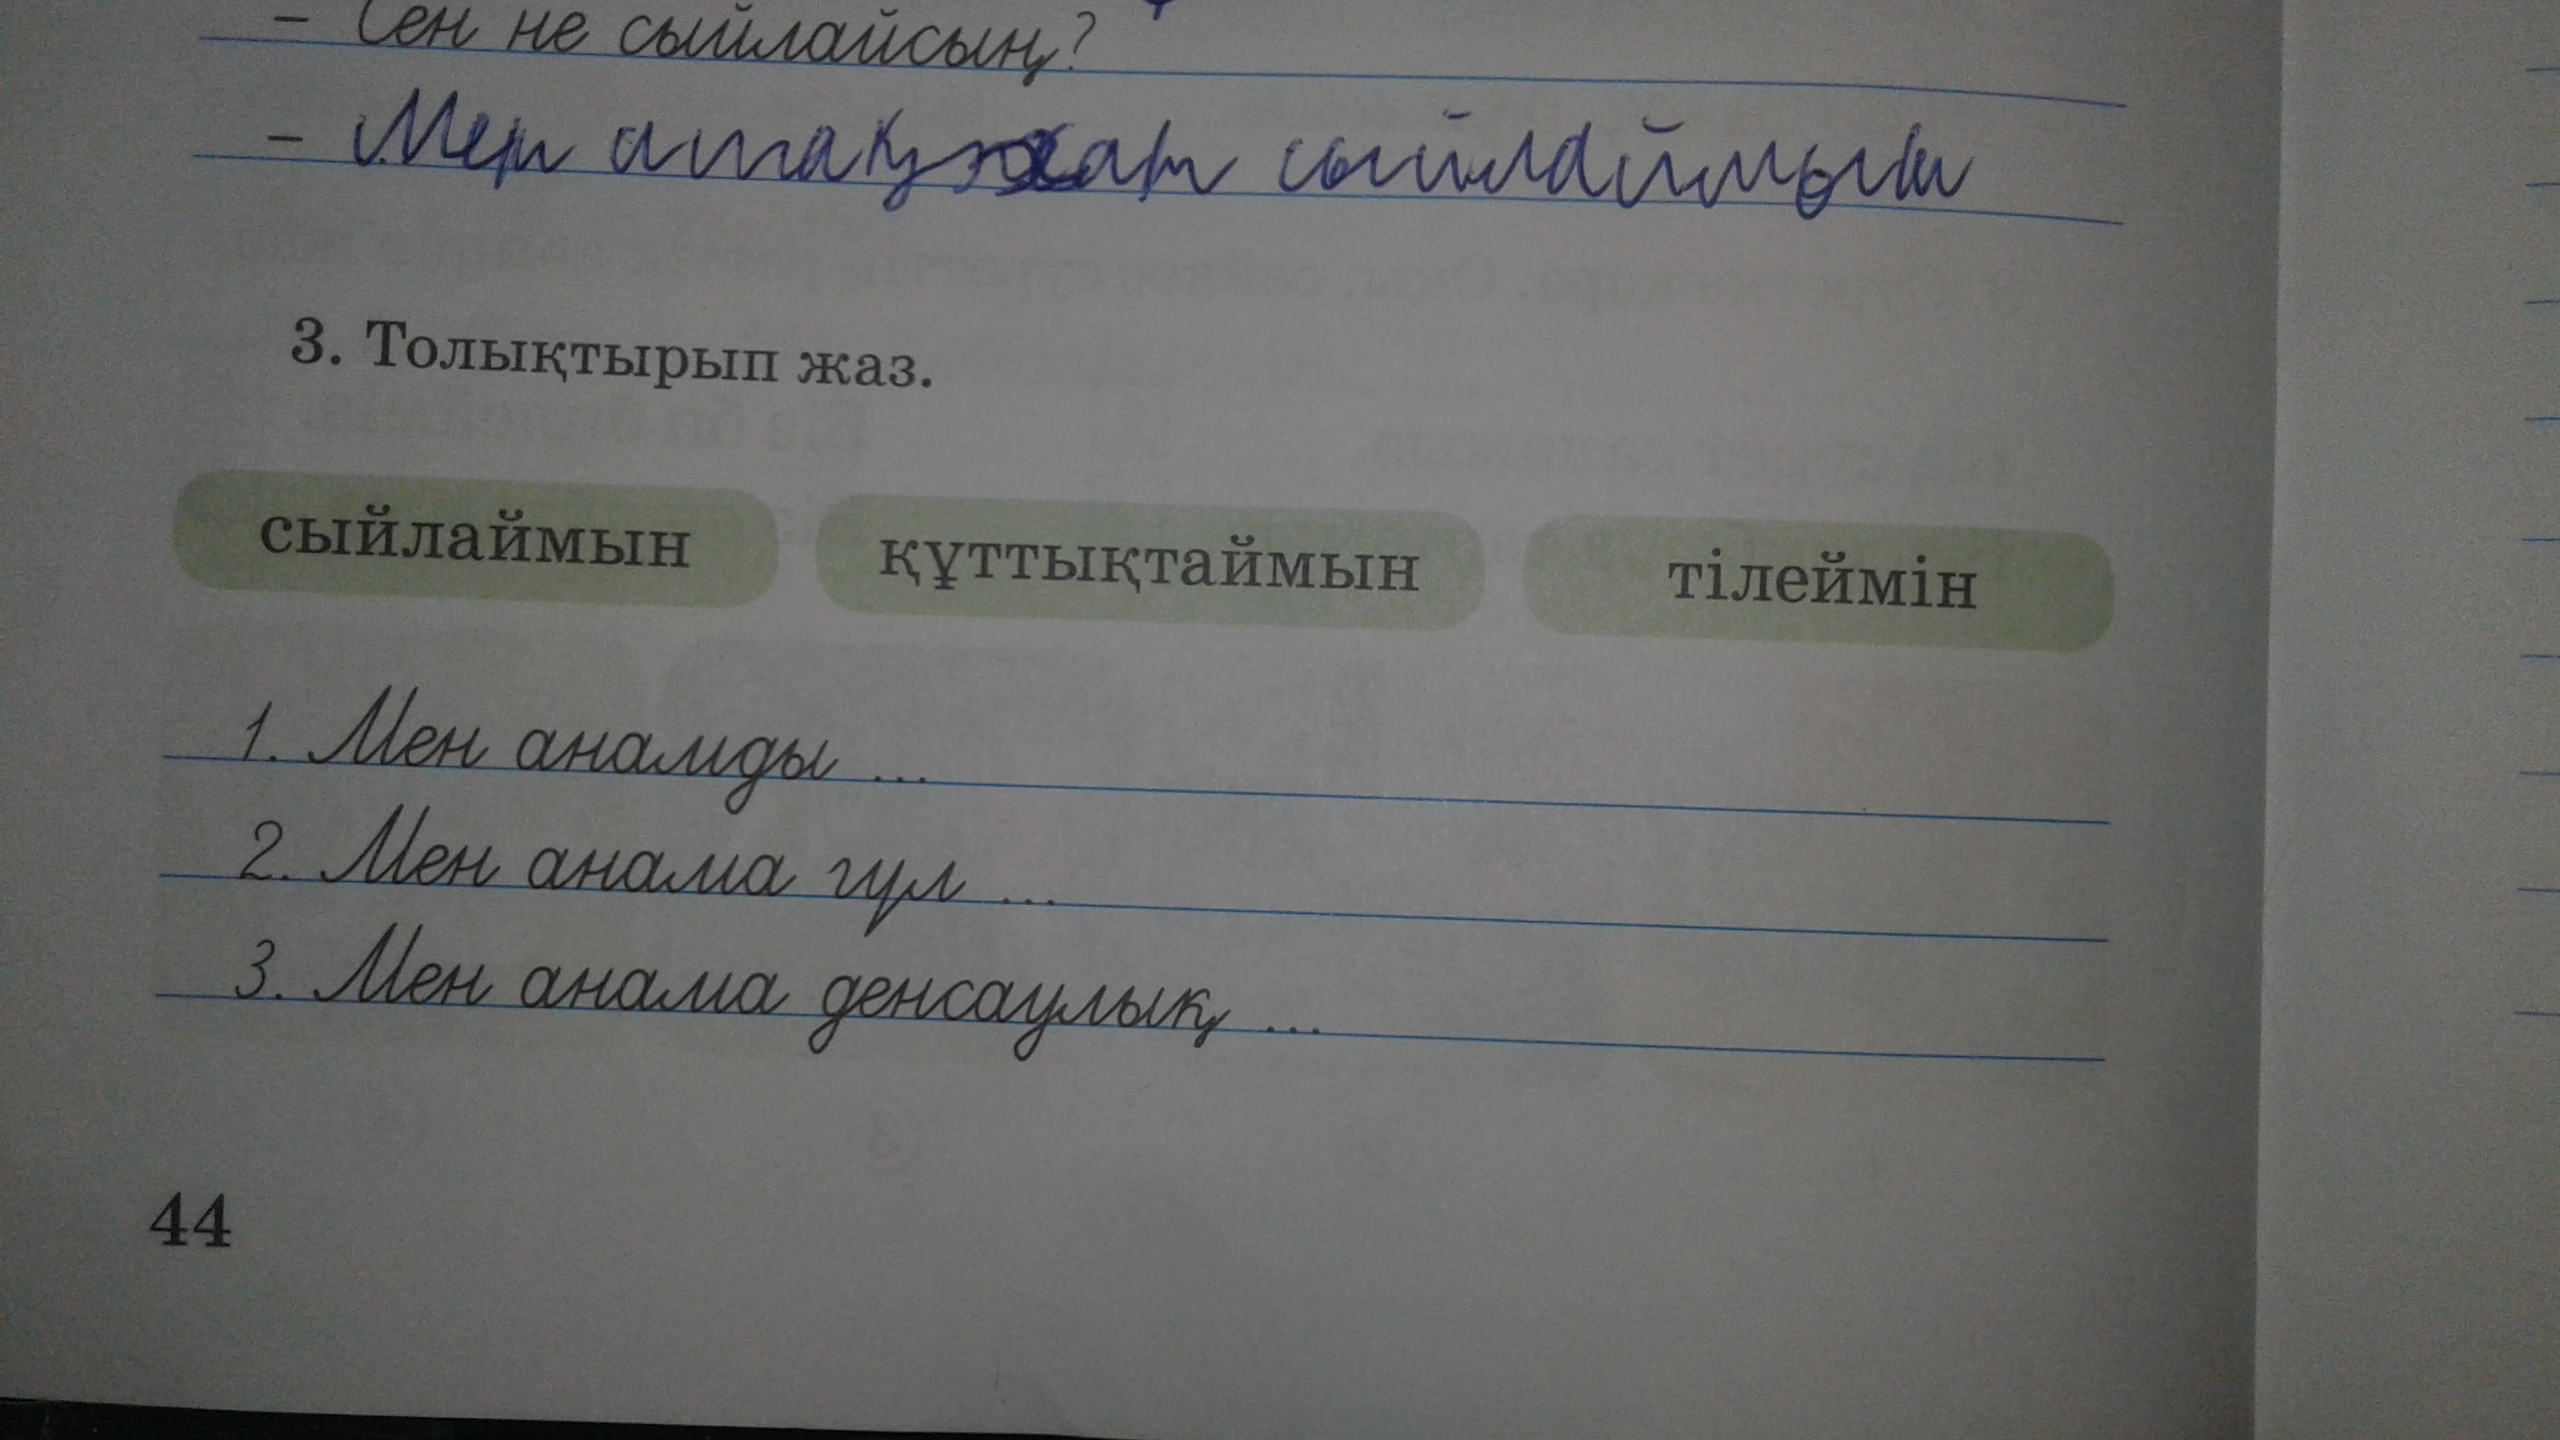 – Сен не сыйлайсың?
– Мен ашақхат сыйлаймын
3. Толықтырып жаз.
сыйлаймын құттықтаймын тілеймін
1. Мен анамды ...
2. Мен анама гүл ...
3. Мен анама денсаулық ...
44